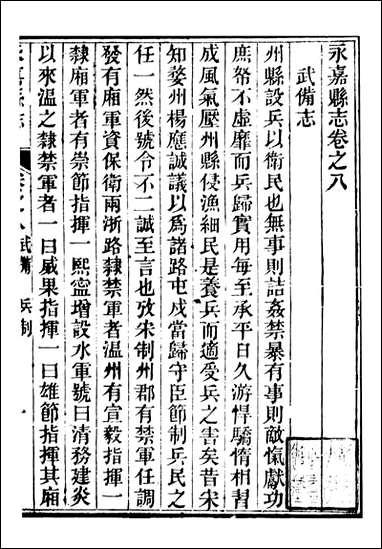 永嘉縣志卷之八
武備志
州縣設兵以衞民也無事則詰姦禁暴有事則敵愾獻功
庶帑不虛靡而兵歸實用每至承平日久游悍驕惰相習
成風氣壓州縣侵漁細民是養兵而適受兵之害矣昔宋
知婺州楊應誠議以爲諸路屯戍當歸守臣節制兵民之
任一然後號令不二誠至言也攷宋制州郡有禁軍任調
發有廂軍資保衛兩浙路隸禁軍者温州有宣毅指揮一
隸廂軍者有崇節指揮一熙寧增設水軍號曰清務建炎
以來温之隸禁軍者一曰威果指揮一曰雄節指揮其廂
永嘉縣志
卷之八武備 兵制
一